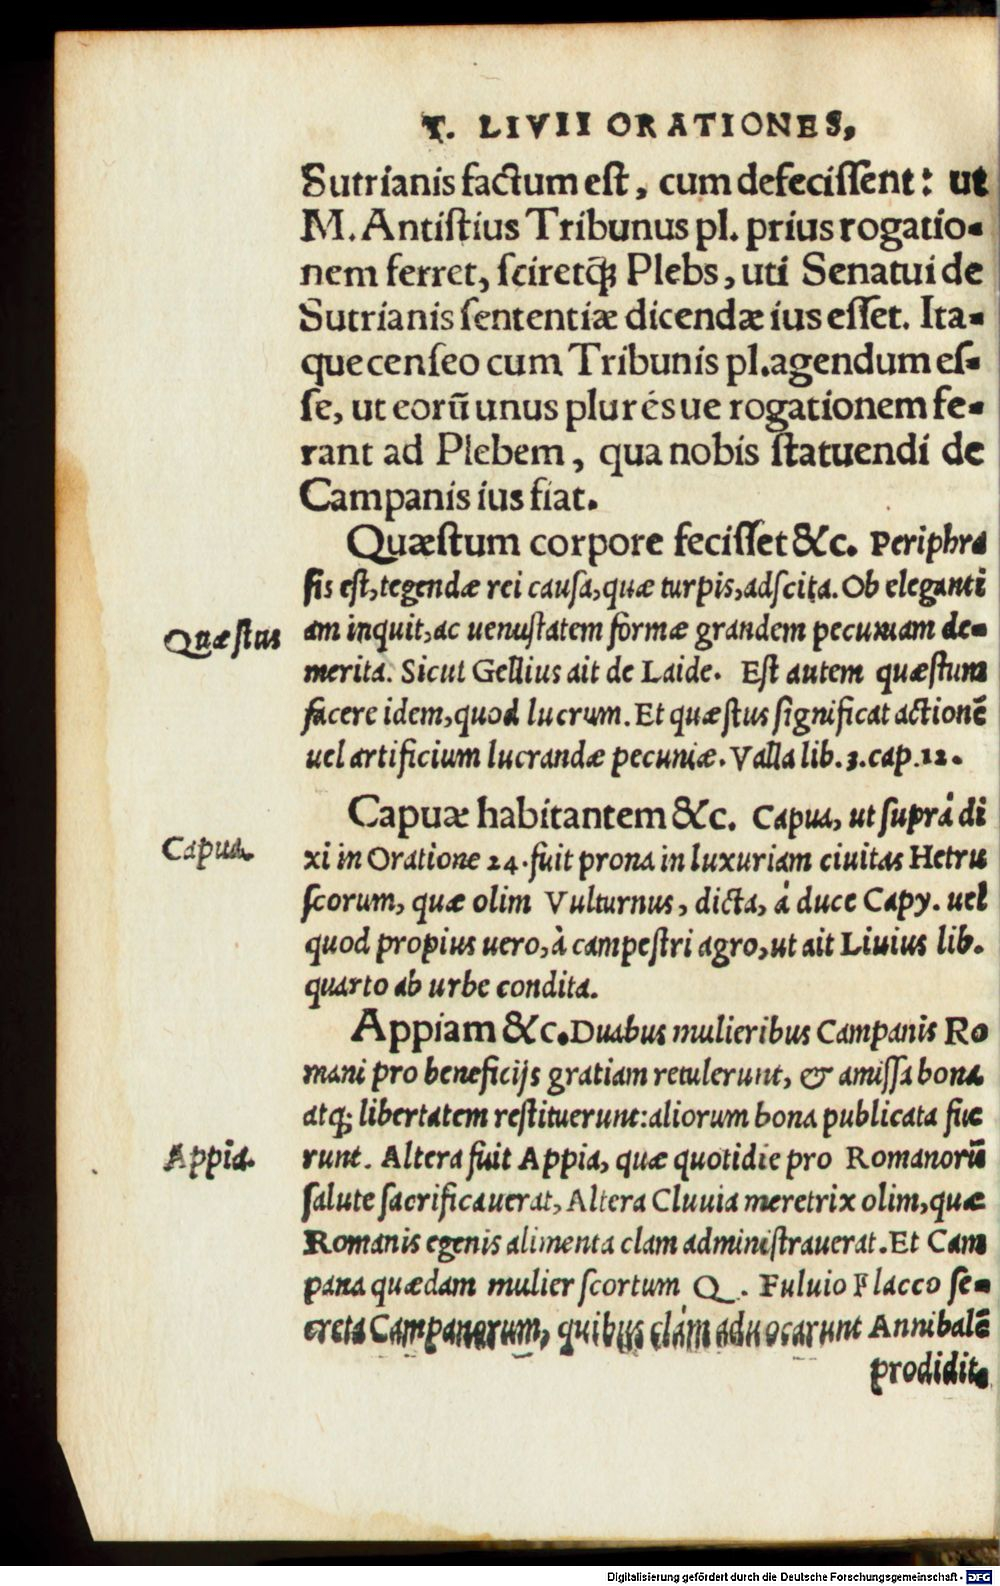 T. LIVII ORATIONES,
Sutrianis factum est, cum defecissent: ut
M. Antistius Tribunus pl. prius rogatio-
nem ferret, sciretq́; Plebs, uti Senatui de
Sutrianis sententiæ dicendæ ius esset. Ita-
que censeo cum Tribunis pl. agendum es-
se, ut eorũ unus plurésue rogationem fe-
rant ad Plebem, qua nobis statuendi de
Campanis ius fiat.
Quæstum corpore fecisset &c. Periphra
sis est, tegendæ rei causa, quæ turpis, adscita. Ob eleganti
Quæstus
am inquit, ac uenustatem formæ grandem pecuniam de-
merita. Sicut Gellius ait de Laide. Est autem quæstum
facere idem, quod lucrum. Et quæstus significat actionẽ
uel artificium lucrandæ pecuniæ. Valla lib. 3. cap. 12.
Capuæ habitantem &c. Capua, ut suprà di
Capua.
xi in Oratione 24. fuit prona in luxuriam ciuitas Hetru
scorum, quæ olim Vulturnus, dicta, à duce Capy. uel
quod propius uero, à campestri agro, ut ait Liuius lib.
quarto ab urbe condita.
Appiam &c. Duabus mulieribus Campanis Ro
mani pro beneficijs gratiam retulerunt, & amissa bona
atq; libertatem restituerunt: aliorum bona publicata fue
Appia.
runt. Altera fuit Appia, quæ quotidie pro Romanorũ
salute sacrificauerat, Altera Cluuia meretrix olim, quæ
Romanis egenis alimenta clam administrauerat. Et Cam
pana quædam mulier scortum Q. Fuluio Flacco se-
creta Campanorum, quibus clàm aduocarunt Annibalẽ
prodidit.
Digitalisierung gefördert durch die Deutsche Forschungsgemeinschaft - DFG